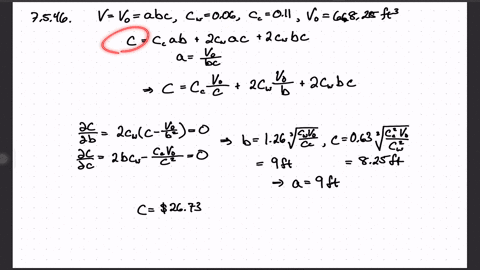 7.5.46. V = V₀ = abc, C_w = 0.06, C_c = 0.11, V₀ = 668.25 ft³
C = C_c ab + 2C_w ac + 2C_w bc
a = V₀/bc
→ C = C_c V₀/c + 2C_w V₀/b + 2C_w bc
∂C/∂b = 2C_w(c - V₀/b²) = 0
∂C/∂c = 2bC_w - C_c V₀/c² = 0
→ b = 1.26 ∛(C_w V₀/C_c), c = 0.63 ∛(C_c² V₀/C_w²)
= 9 ft = 8.25 ft
→ a = 9 ft
C = $26.73